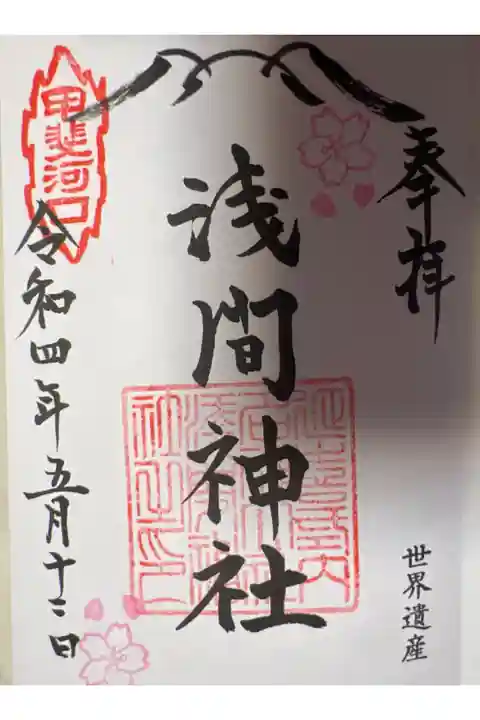 奉拝
世界遺産
淺間神社
甲斐河口
令和四年五月十二日